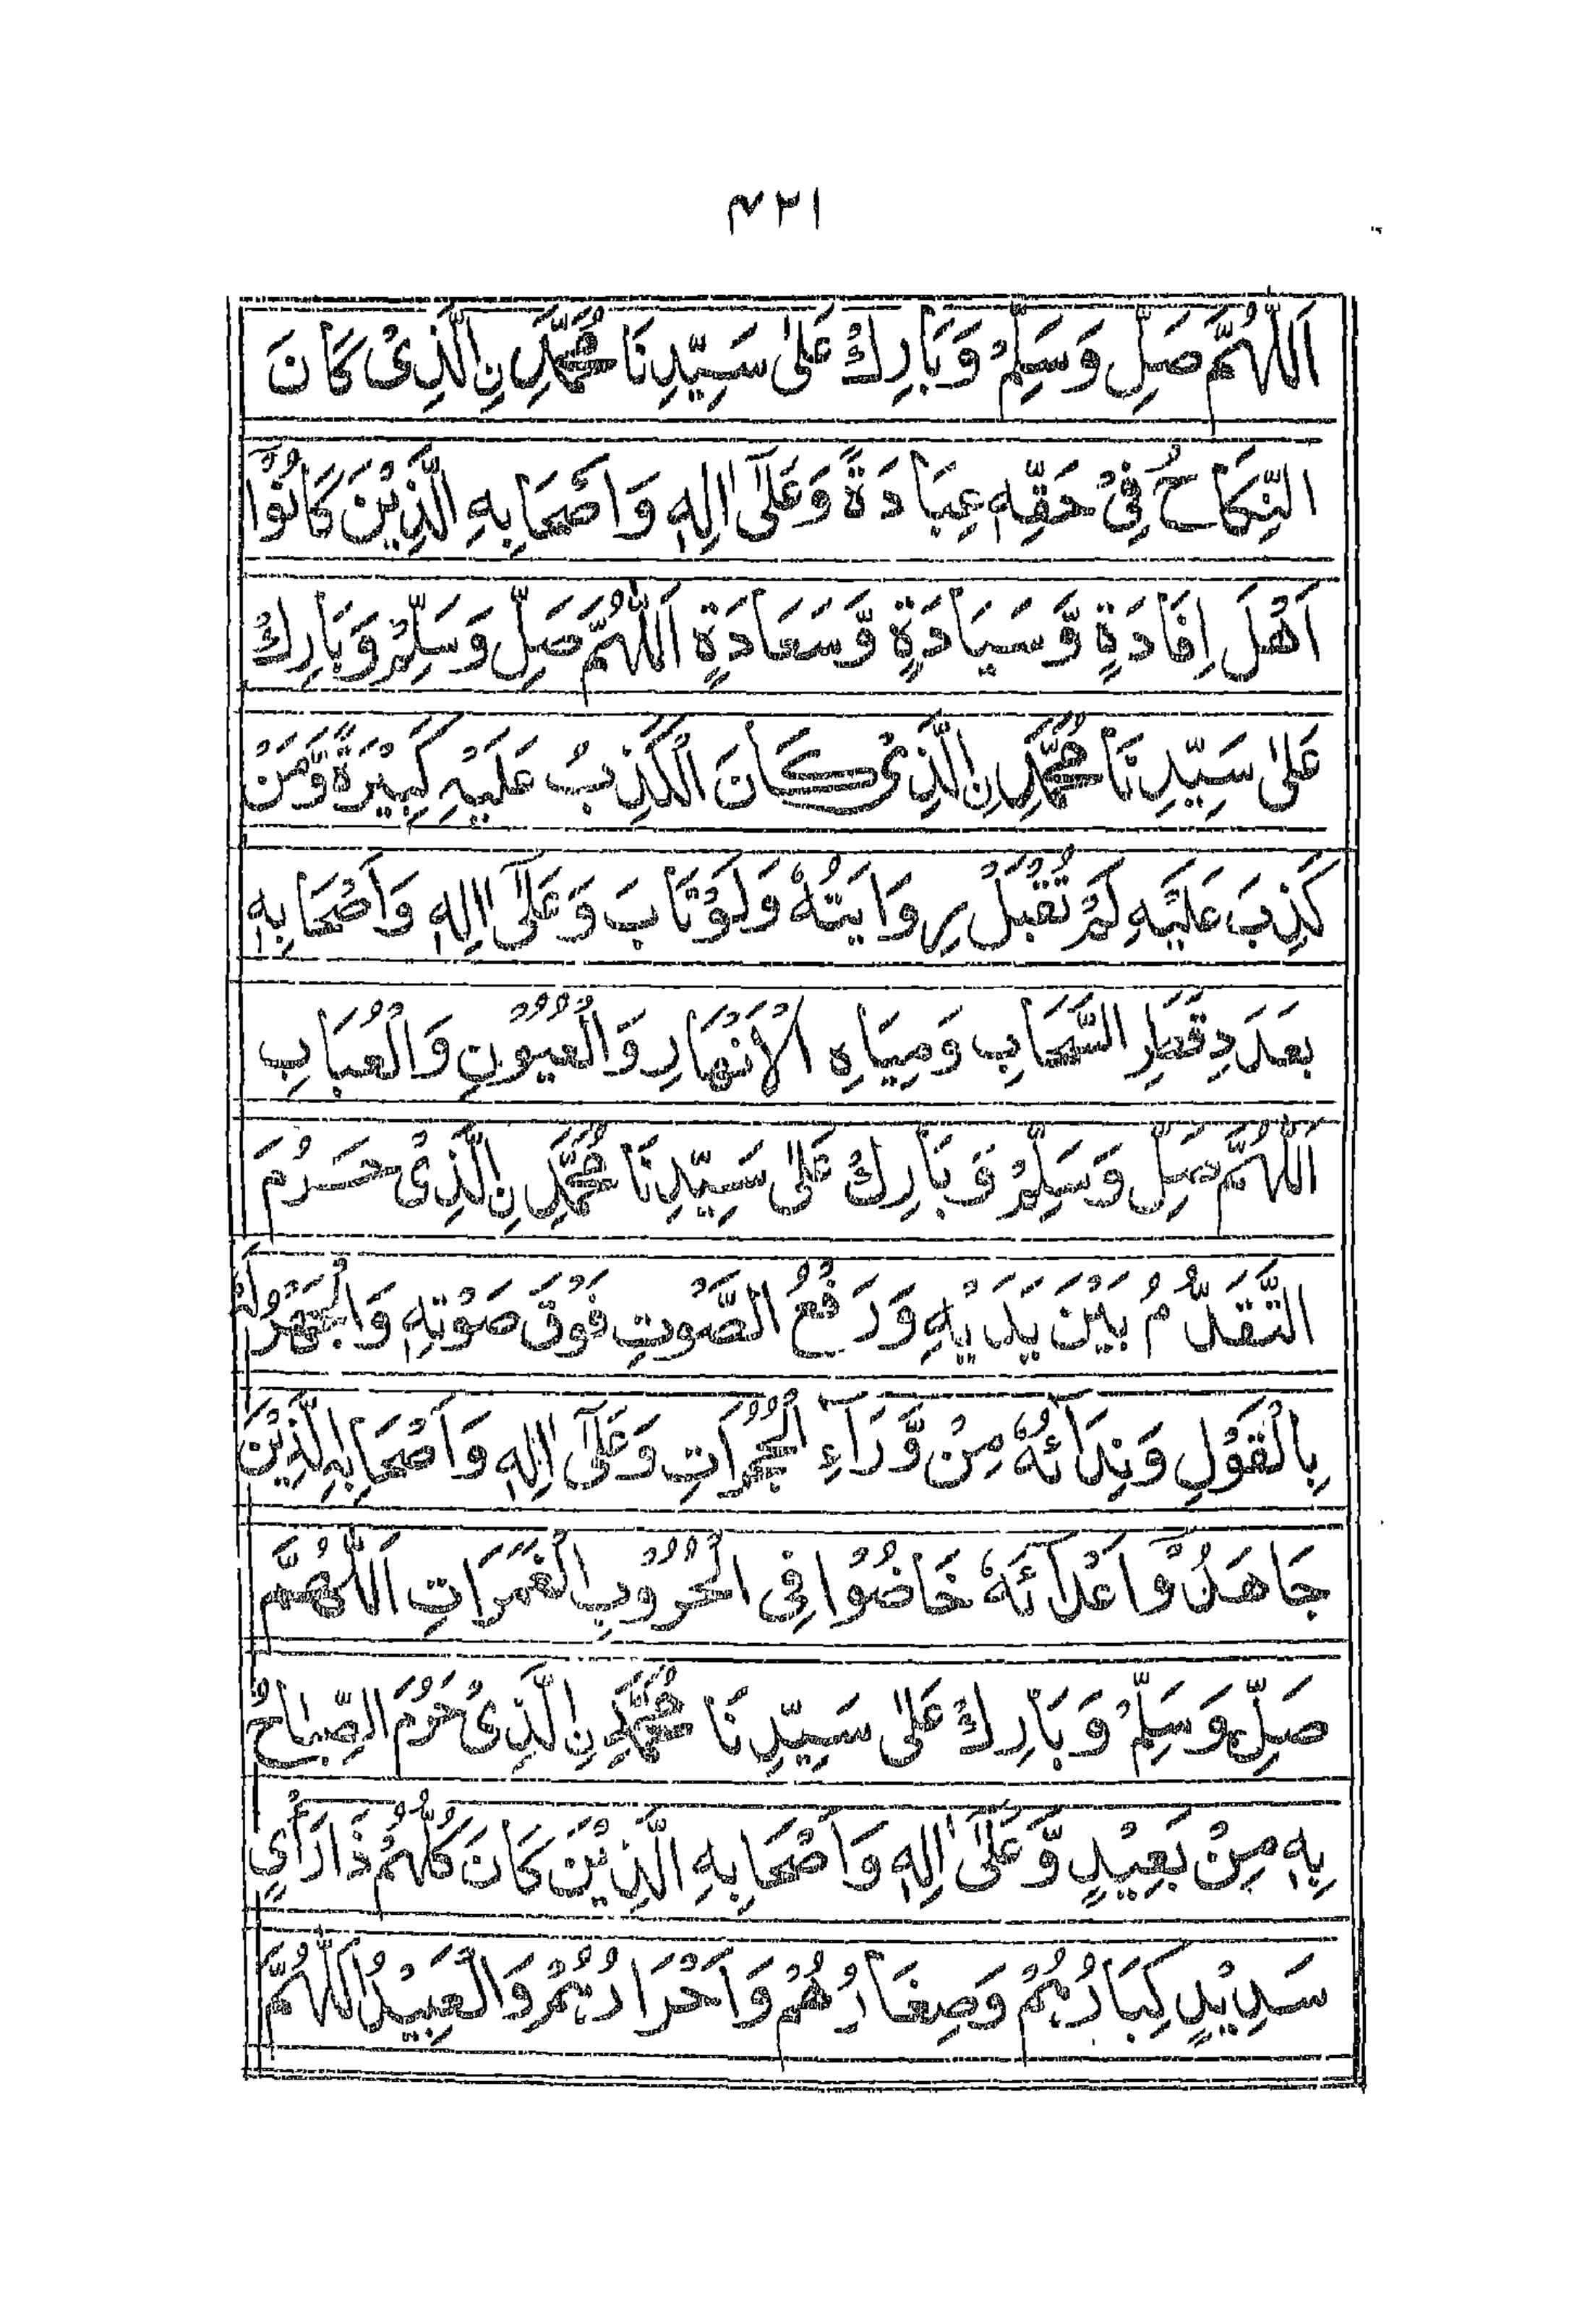 ۴۲۱
اَللّٰهُمَّ صَلِّ وَسَلِّمْ وَبَارِكْ عَلٰى سَيِّدِنَا مُحَمَّدِنِ الَّذِىْ كَانَ
النِّكَاحُ فِىْ حَقِّهٖ عِبَادَةً وَعَلٰٓى اٰلِهٖ وَاَصْحَابِهِ الَّذِيْنَ كَانُوْا
اَهْلَ اِفَادَةٍ وَّسَيَادَةٍ وَّسَعَادَةٍ اَللّٰهُمَّ صَلِّ وَسَلِّمْ وَبَارِكْ
عَلٰى سَيِّدِنَا مُحَمَّدِنِ الَّذِىْ كَانَ الْكَذِبُ عَلَيْهِ كَبِيْرَةً وَّمَنْ
كَذِبَ عَلَيْهِ لَمْ تُقْبَلْ رِوَايَتُهٗ وَلَوْ تَابَ وَعَلٰٓى اٰلِهٖ وَاَصْحَابِهٖ
بِعَدَدِ قَطَرِ السَّحَابِ وَمِيَاهِ الْاَنْهَارِ وَالْعُيُوْنِ وَالْعُبَابِ
اَللّٰهُمَّ صَلِّ وَسَلِّمْ وَبَارِكْ عَلٰى سَيِّدِنَا مُحَمَّدِنِ الَّذِىْ حَرُمَ
التَّقَدُّمُ بَيْنَ يَدَيْهِ وَرَفْعُ الصَّوْتِ فَوْقَ صَوْتِهٖ وَالْجَهْرُ لَهٗ
بِالْقَوْلِ وَنِدَآئُهٗ مِنْ وَّرَآءِ الْحُجُرَاتِ وَعَلٰٓى اٰلِهٖ وَاَصْحَابِهِ الَّذِيْنَ
جَاهَدُوْا اَعْدَآئَهٗ خَاضُوْا فِى الْحُرُوْبِ الْغَمَرَاتِ اَللّٰهُمَّ
صَلِّ وَسَلِّمْ وَبَارِكْ عَلٰى سَيِّدِنَا مُحَمَّدِنِ الَّذِىْ حَرُمَ الصِّيَاحُ
بِهٖ مِنْ بَعِيْدٍ وَّعَلٰٓى اٰلِهٖ وَاَصْحَابِهِ الَّذِيْنَ كَانَ كُلُّهُمْ ذَا رَأْيٍ
سَدِيْدٍ كِبَارُهُمْ وَصِغَارُهُمْ وَاَحْرَارُهُمْ وَالْعَبِيْدُ اَللّٰهُمَّ